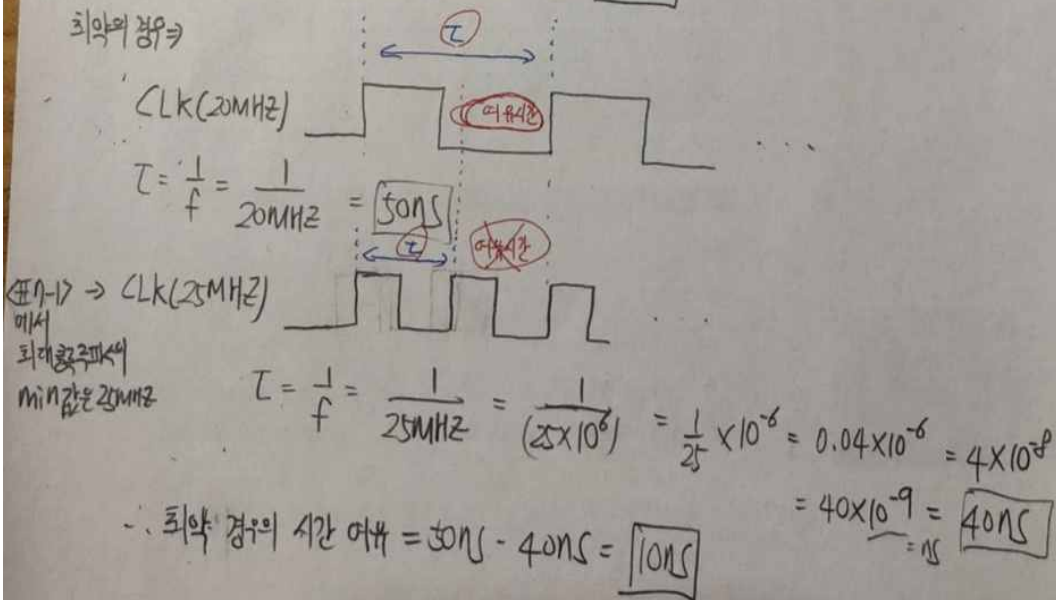 최악의 경우 ⇒
τ
CLK(20MHZ) 여유시간 ...
τ = 1/f = 1/20MHZ = 50ns
τ 여유시간
<표7-1> → CLK(25MHZ) ...
에서
최대클록주파수의
min값은 25MHZ
τ = 1/f = 1/25MHZ = 1/(25×10⁶) = 1/25 ×10⁻⁶ = 0.04×10⁻⁶ = 4×10⁻⁸
= 40×10⁻⁹ = 40ns
= ns
∴ 최악 경우의 시간 여유 = 50ns - 40ns = 10ns